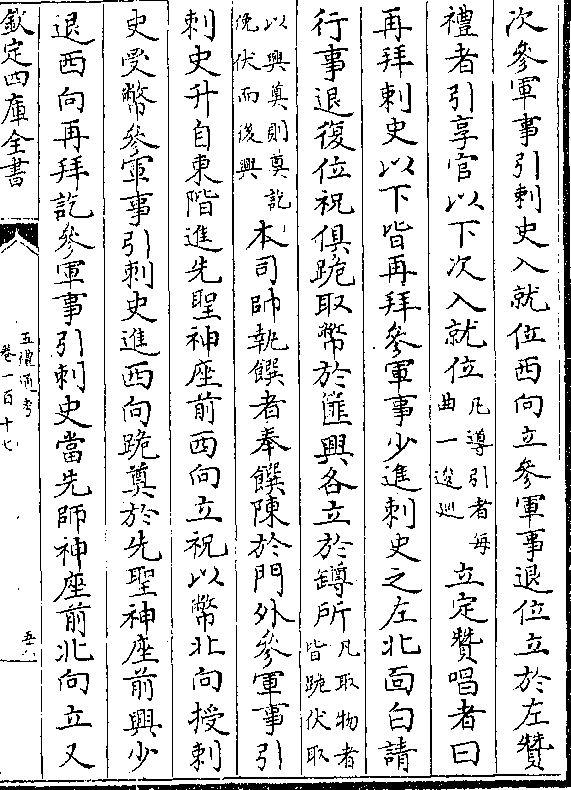 次參軍事引刺史入就位西向立參軍事退位立於左贊
禮者引享官以下次入就位凡導引者每曲一逡巡立定贊唱者曰
再拜刺史以下皆再拜參軍事少進刺史之左北面白請
行事退復位祝俱跪取幣於篚興各立於罇所凡取物者皆跪伏取
以興奠則奠訖俛伏而後興本司帥執饌者奉饌陳於門外參軍事引
刺史升自東階進先聖神座前西向立祝以幣北向授刺
史受幣參軍事引刺史進西向跪奠於先聖神座前興少
退西向再拜訖參軍事引刺史當先師神座前北向立又
欽定四庫全書
五禮通考
卷一百十七